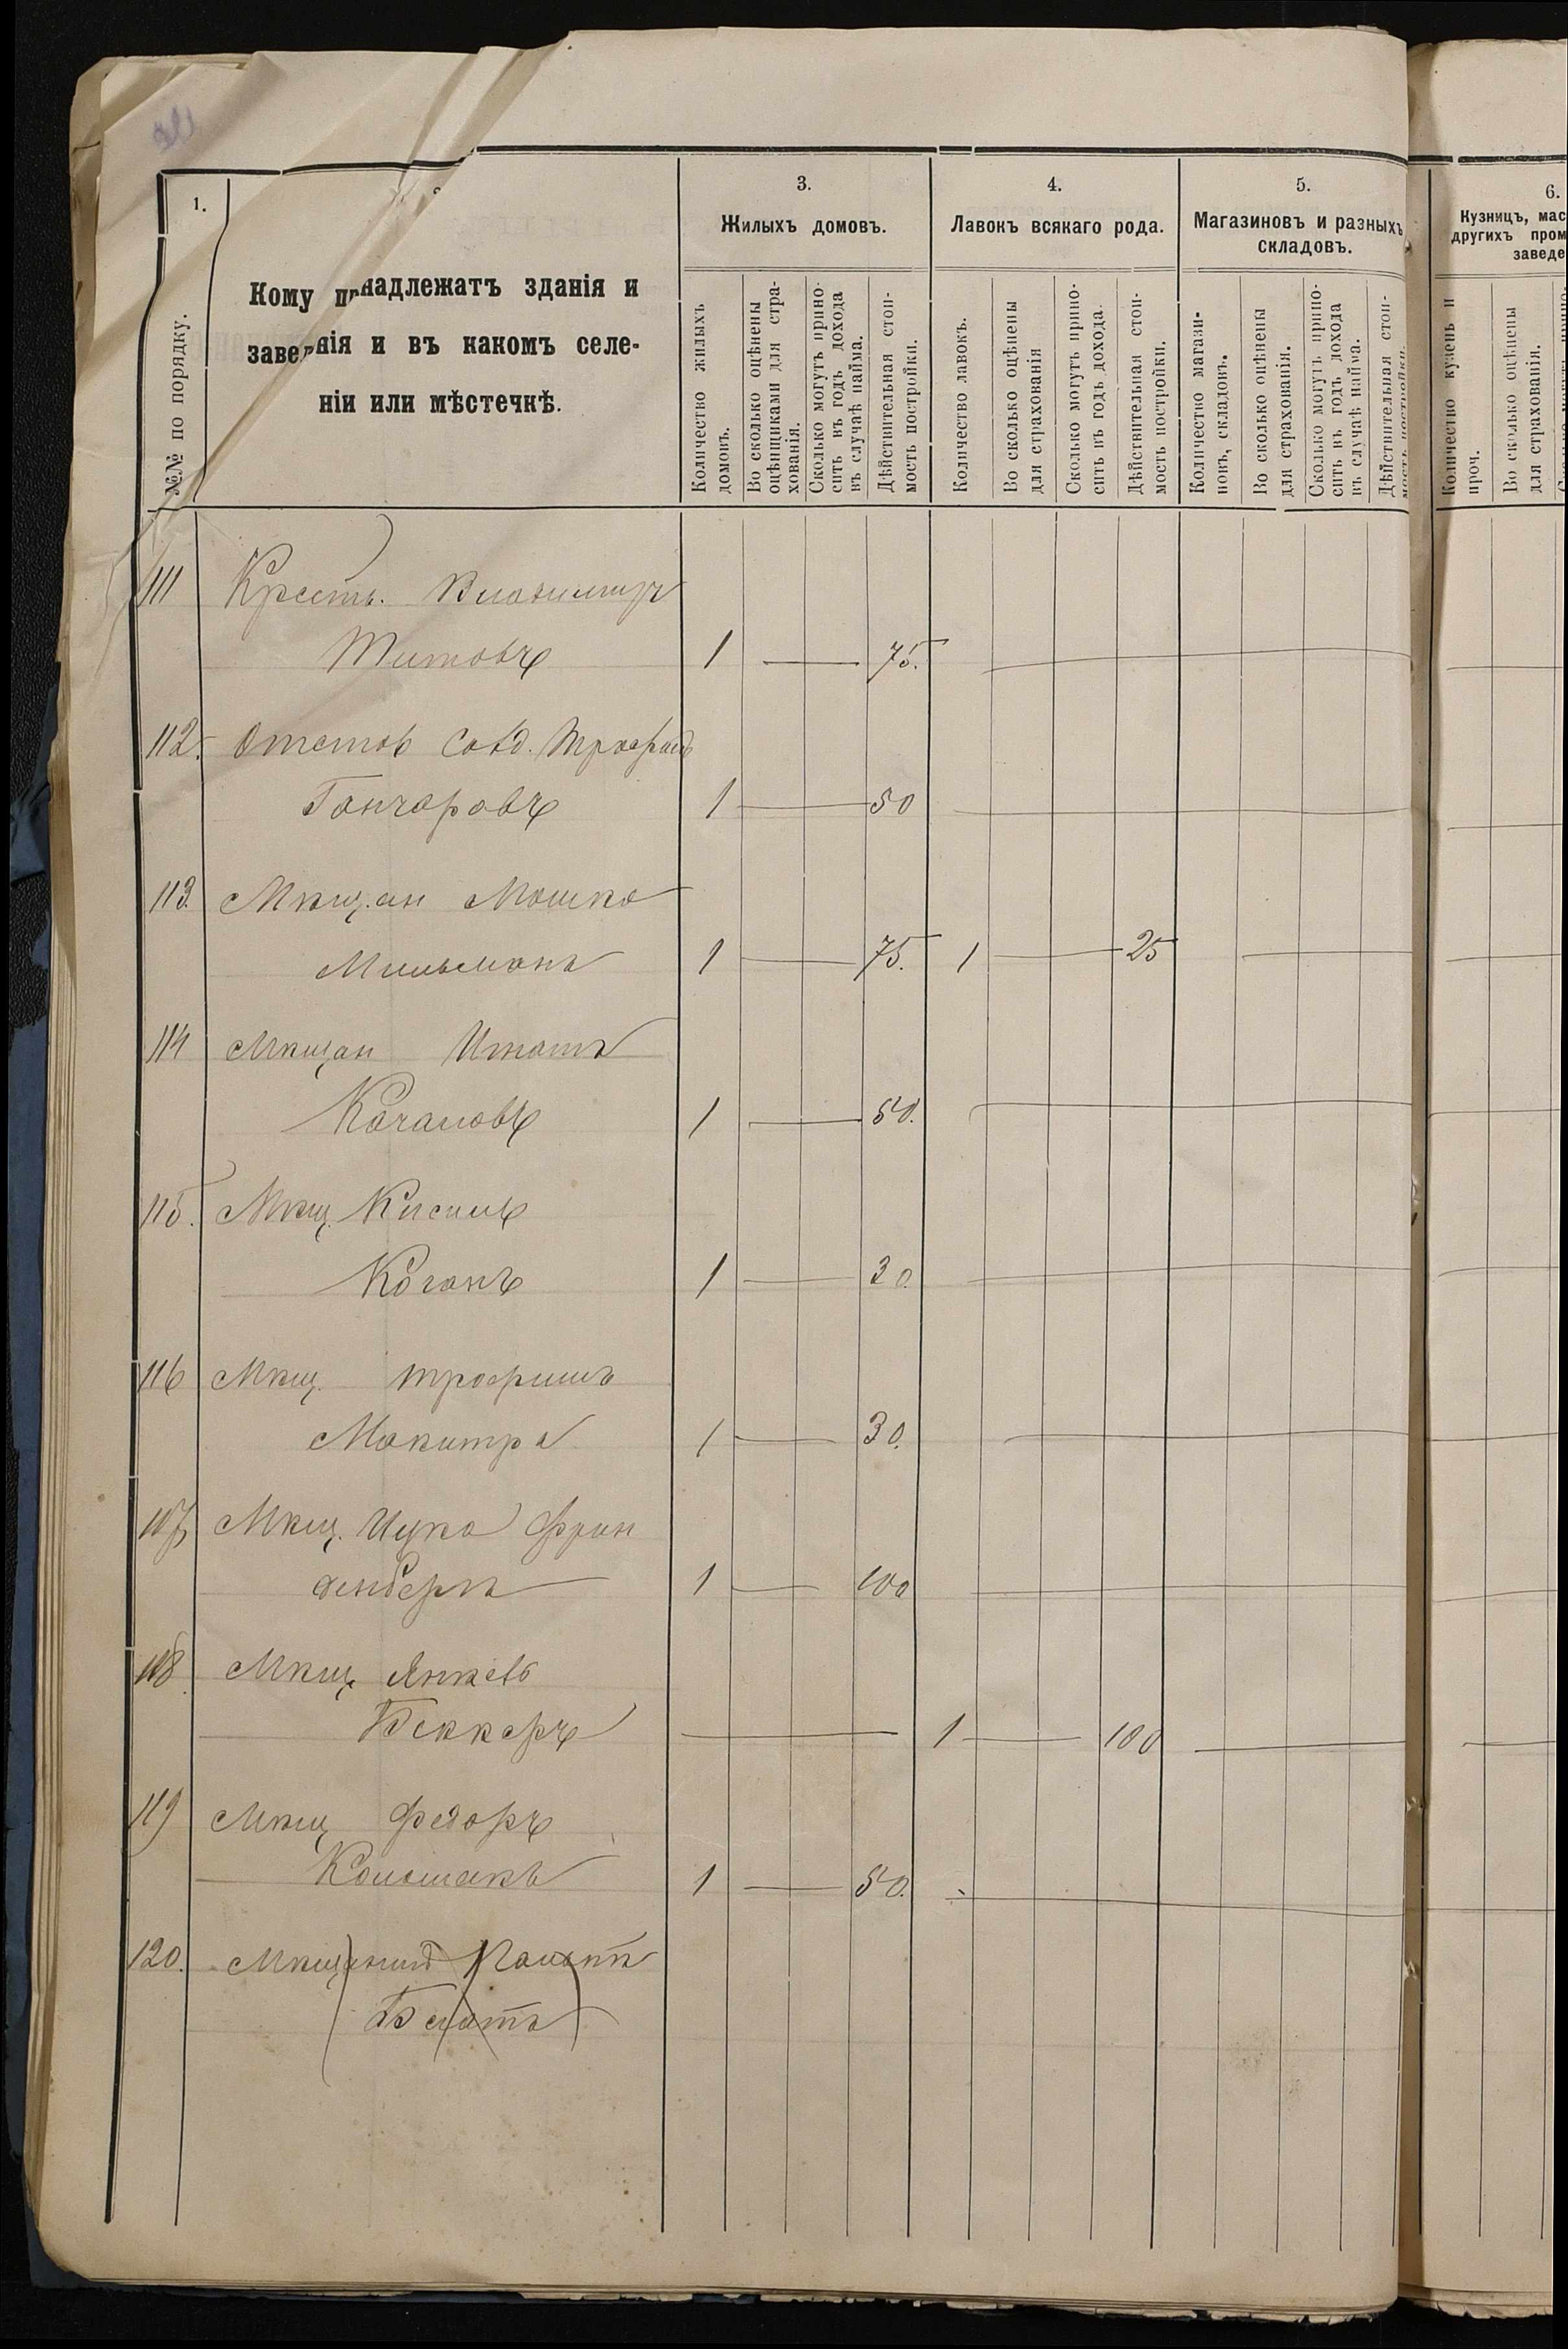 1.
3.
4.
5.
6.
№№ по порядку.
Кому надлежатъ зданія и
заведнія и въ какомъ селе-
ніи или мѣстечкѣ.
Жилыхъ домовъ.
Количество жилыхъ
домовъ.
Во сколько оцѣнены
оцѣнщиками для стра-
хованія.
Сколько могутъ прино-
сить въ годъ дохода
въ случаѣ найма.
Дѣйствительная стои-
мость постройки.
Лавокъ всякаго рода.
Количество лавокъ.
Во сколько оцѣнены
для страхованія
Сколько могутъ прино-
сить въ годъ дохода.
Дѣйствительная стои-
мость постройки.
Магазиновъ и разныхъ
складовъ.
Количество магази-
новъ, складовъ.
Во сколько оцѣнены
для страхованія.
Сколько могутъ прино-
сить въ годъ дохода
въ случаѣ найма.
Дѣйствительная стои-
мость постройки.
Кузницъ, мас
другихъ пром
заведе
Количество кузень и
проч.
Во сколько оцѣнены
для страхованія.
111 Крестъ. Владимиръ
Титовъ 1 — 75.
112. Отстов Солд. Трофимъ
Гончаровъ 1 — 50
113. Мѣщ.ан Мошко
Мильманъ 1 — 75. 1 — 25
114 Мѣщан Игнатъ
Качановъ 1 — 50.
115. Мѣщ. Кисиль
Коганъ 1 — 30.
116 Мѣщ. Трофимъ
Макитра 1 — 30.
117 Мѣщ. Ицко Фрин
денбергъ 1 — 100
118. Мѣщ. Янкевъ
Беккеръ — 1 — 100
119 Мѣщ Федоръ
Колпакъ 1 — 50.
120. Мѣщанинъ